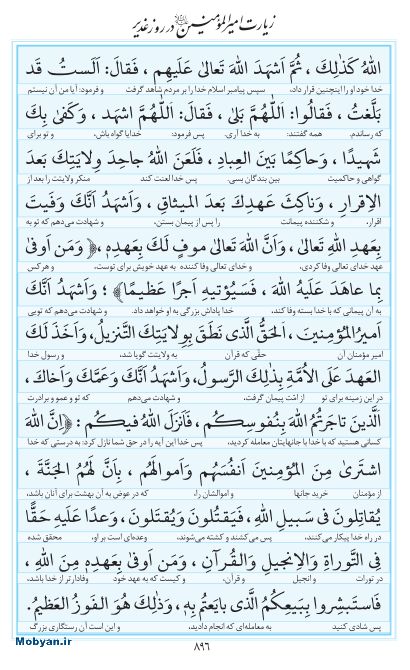 زیارت امیرالمؤمنین در روز غدیر
اللهُ كَذٰلِكَ ، ثُمَّ اَشهَدَ اللهَ تَعالىٰ عَلَيهِم ، فَقالَ: اَلَستُ قَد
خدا خود او را اینچنین قرار داد، سپس پیامبر اسلام خدا را بر مردم شاهد گرفت و فرمود: آیا من آن نیستم
بَلَّغتُ ، فَقالُوا: اَللّٰهُمَّ بَلىٰ ، فَقالَ: اَللّٰهُمَّ اشهَد ، وَكَفىٰ بِكَ
که رساندم. همه گفتند: به خدا آری. پس فرمود: خدایا گواه باش، و تو برای
شَهيدًا ، وَحاكِمًا بَينَ العِبادِ ، فَلَعَنَ اللهُ جاحِدَ وِلايَتِكَ بَعدَ
گواهی و حاکمیت بین بندگان بسی. پس خدا لعنت کند منکر ولایتت را بعد از
الاِقرارِ ، وَناكِثَ عَهدِكَ بَعدَ الميثاقِ ، وَاَشهَدُ اَنَّكَ وَفَيتَ
اقرار، و شکننده پیمانت را پس از پیمان بستن، و شهادت می‌دهم که تو به
بِعَهدِ اللهِ تَعالىٰ ، وَاَنَّ اللهَ تَعالىٰ موفٍ لَكَ بِعَهدِهٖ ، ﴿وَمَن اَوفىٰ
عهد خدای تعالی وفا کردی، و خدای تعالی وفا کننده به عهد خویش برای توست، و هر کس
بِما عاهَدَ عَلَيهُ اللهَ ، فَسَيُؤتيهِ اَجرًا عَظيمًا﴾ ؛ وَاَشهَدُ اَنَّكَ
به آن پیمانی که با خدا بسته وفا کند، خدا پاداش بزرگی به او خواهد داد. و شهادت می‌دهم که تویی
اَميرُ المُؤمِنينَ ، اَلحَقُّ الَّذى نَطَقَ بِوِلايَتِكَ التَّنزيلُ، وَاَخَذَ لَكَ
امیر مؤمنان آن حقّی که قرآن به ولایتت گویا شد، و رسول خدا
العَهدَ عَلَى الاُمَّةِ بِذٰلِكَ الرَّسولُ، وَاَشهَدُ اَنَّكَ وَعَمَّكَ وَاَخاكَ،
در این زمینه برای تو از امّت پیمان گرفت، و شهادت می‌دهم که تو و عمو و برادرت
اَلَّذينَ تاجَرتُمُ اللهَ بِنُفوسِكُم ، فَاَنزَلَ اللهُ فيكُم : ﴿اِنَّ اللهَ
کسانی هستید که با خدا با جانهایتان معامله کردید، پس خدا این آیه را در حق شما نازل کرد: به درستی که خدا
اشتَرىٰ مِنَ المُؤمِنينَ اَنفُسَهُم وَاَموالَهُم ، بِاَنَّ لَهُمُ الجَنَّةَ ،
از مؤمنان خرید جانها و اموالشان را، که در عوض به آن بهشت برای آنان باشد،
يُقاتِلونَ فى سَبيلِ اللهِ ، فَيَقتُلونَ وَيُقتَلونَ ، وَعدًا عَلَيهِ حَقًّا
در راه خدا پیکار می‌کنند، پس می‌کشند و کشته می‌شوند، وعده‌ای است بر او، محقق شده
فِى التَّوراةِ وَالاِنجيلِ وَالقُرآنِ ، وَمَن اَوفىٰ بِعَهدِهٖ مِنَ اللهِ ،
در تورات و انجیل و قرآن، و کیست که به عهد خود وفادارتر از خدا باشد،
فَاستَبشِروا بِبَيعِكُمُ الَّذى بايَعتُم بِهٖ ، وَذٰلِكَ هُوَ الفَوزُ العَظيمُ.
پس شادی کنید به معامله‌ای که انجام دادید، و این است آن رستگاری بزرگ
۸۹۶
Mobyan.ir